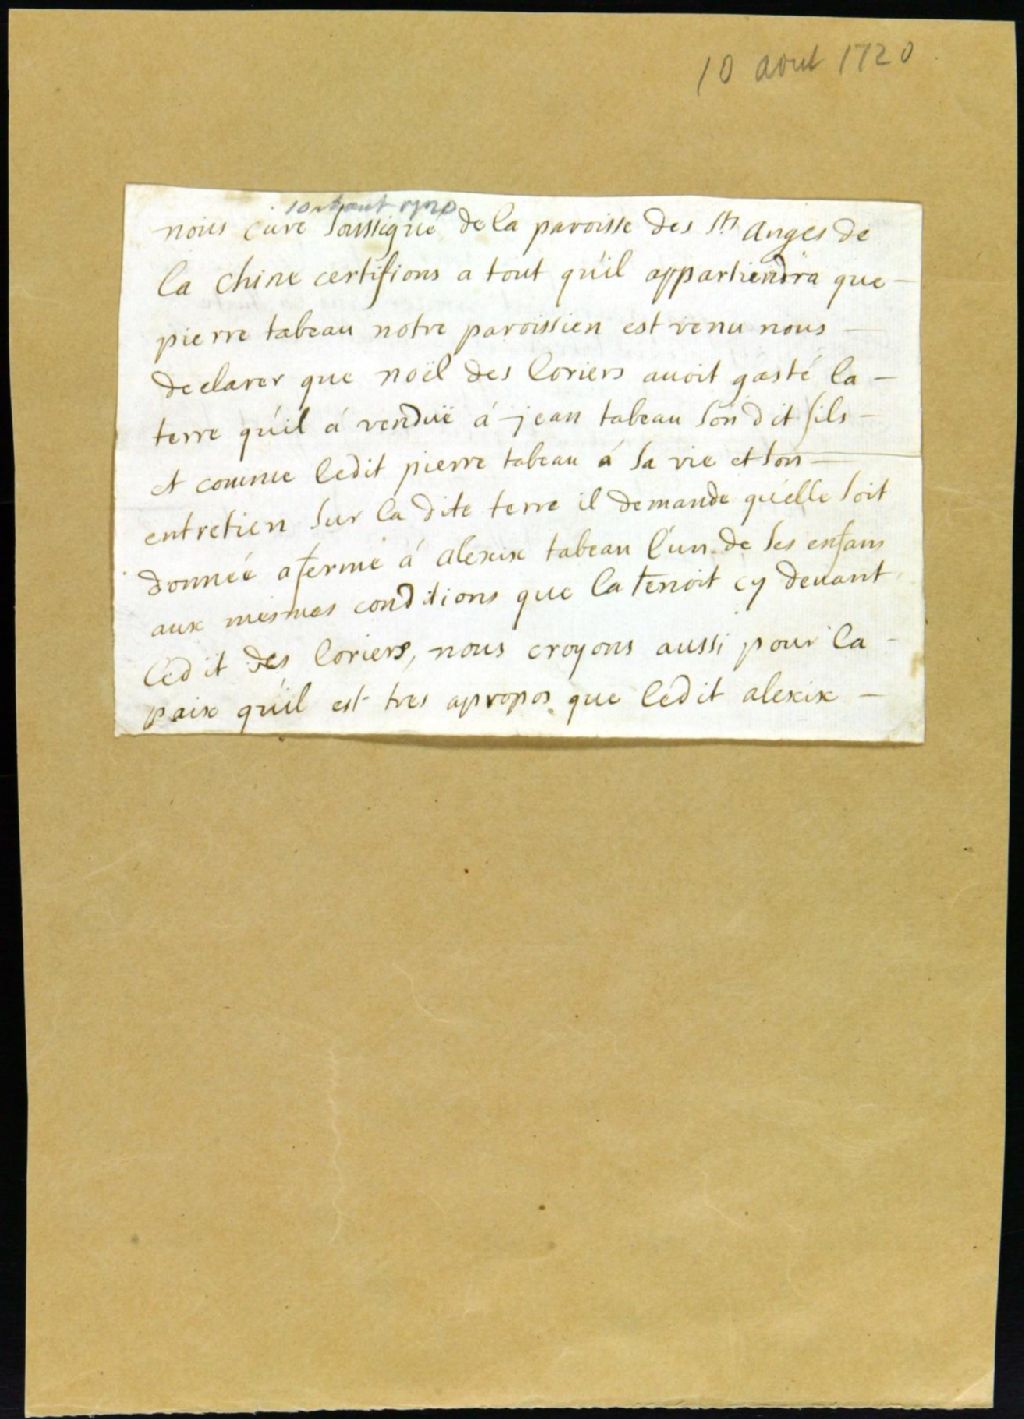 10 aout 1720
10 aout 1720
nous curé soussigné de la paroisse des Sts anges de
la chine certifions a tout qu'il appartiendra que
pierre tabeau notre paroissien est venu nous
declarer que noël des loriers avoit gasté la
terre qu'il á venduë á jean tabeau son dit fils
et comme ledit pierre tabeau á sa vie et son
entretien sur la dite terre il demande qu'elle soit
donnéé a ferme á alexix tabeau l'un de ses enfans
aux mesmes conditions que la tenoit cy devant
ledit des loriers, nous croyons aussi pour la
paix qu'il est tres apropos que ledit alexix